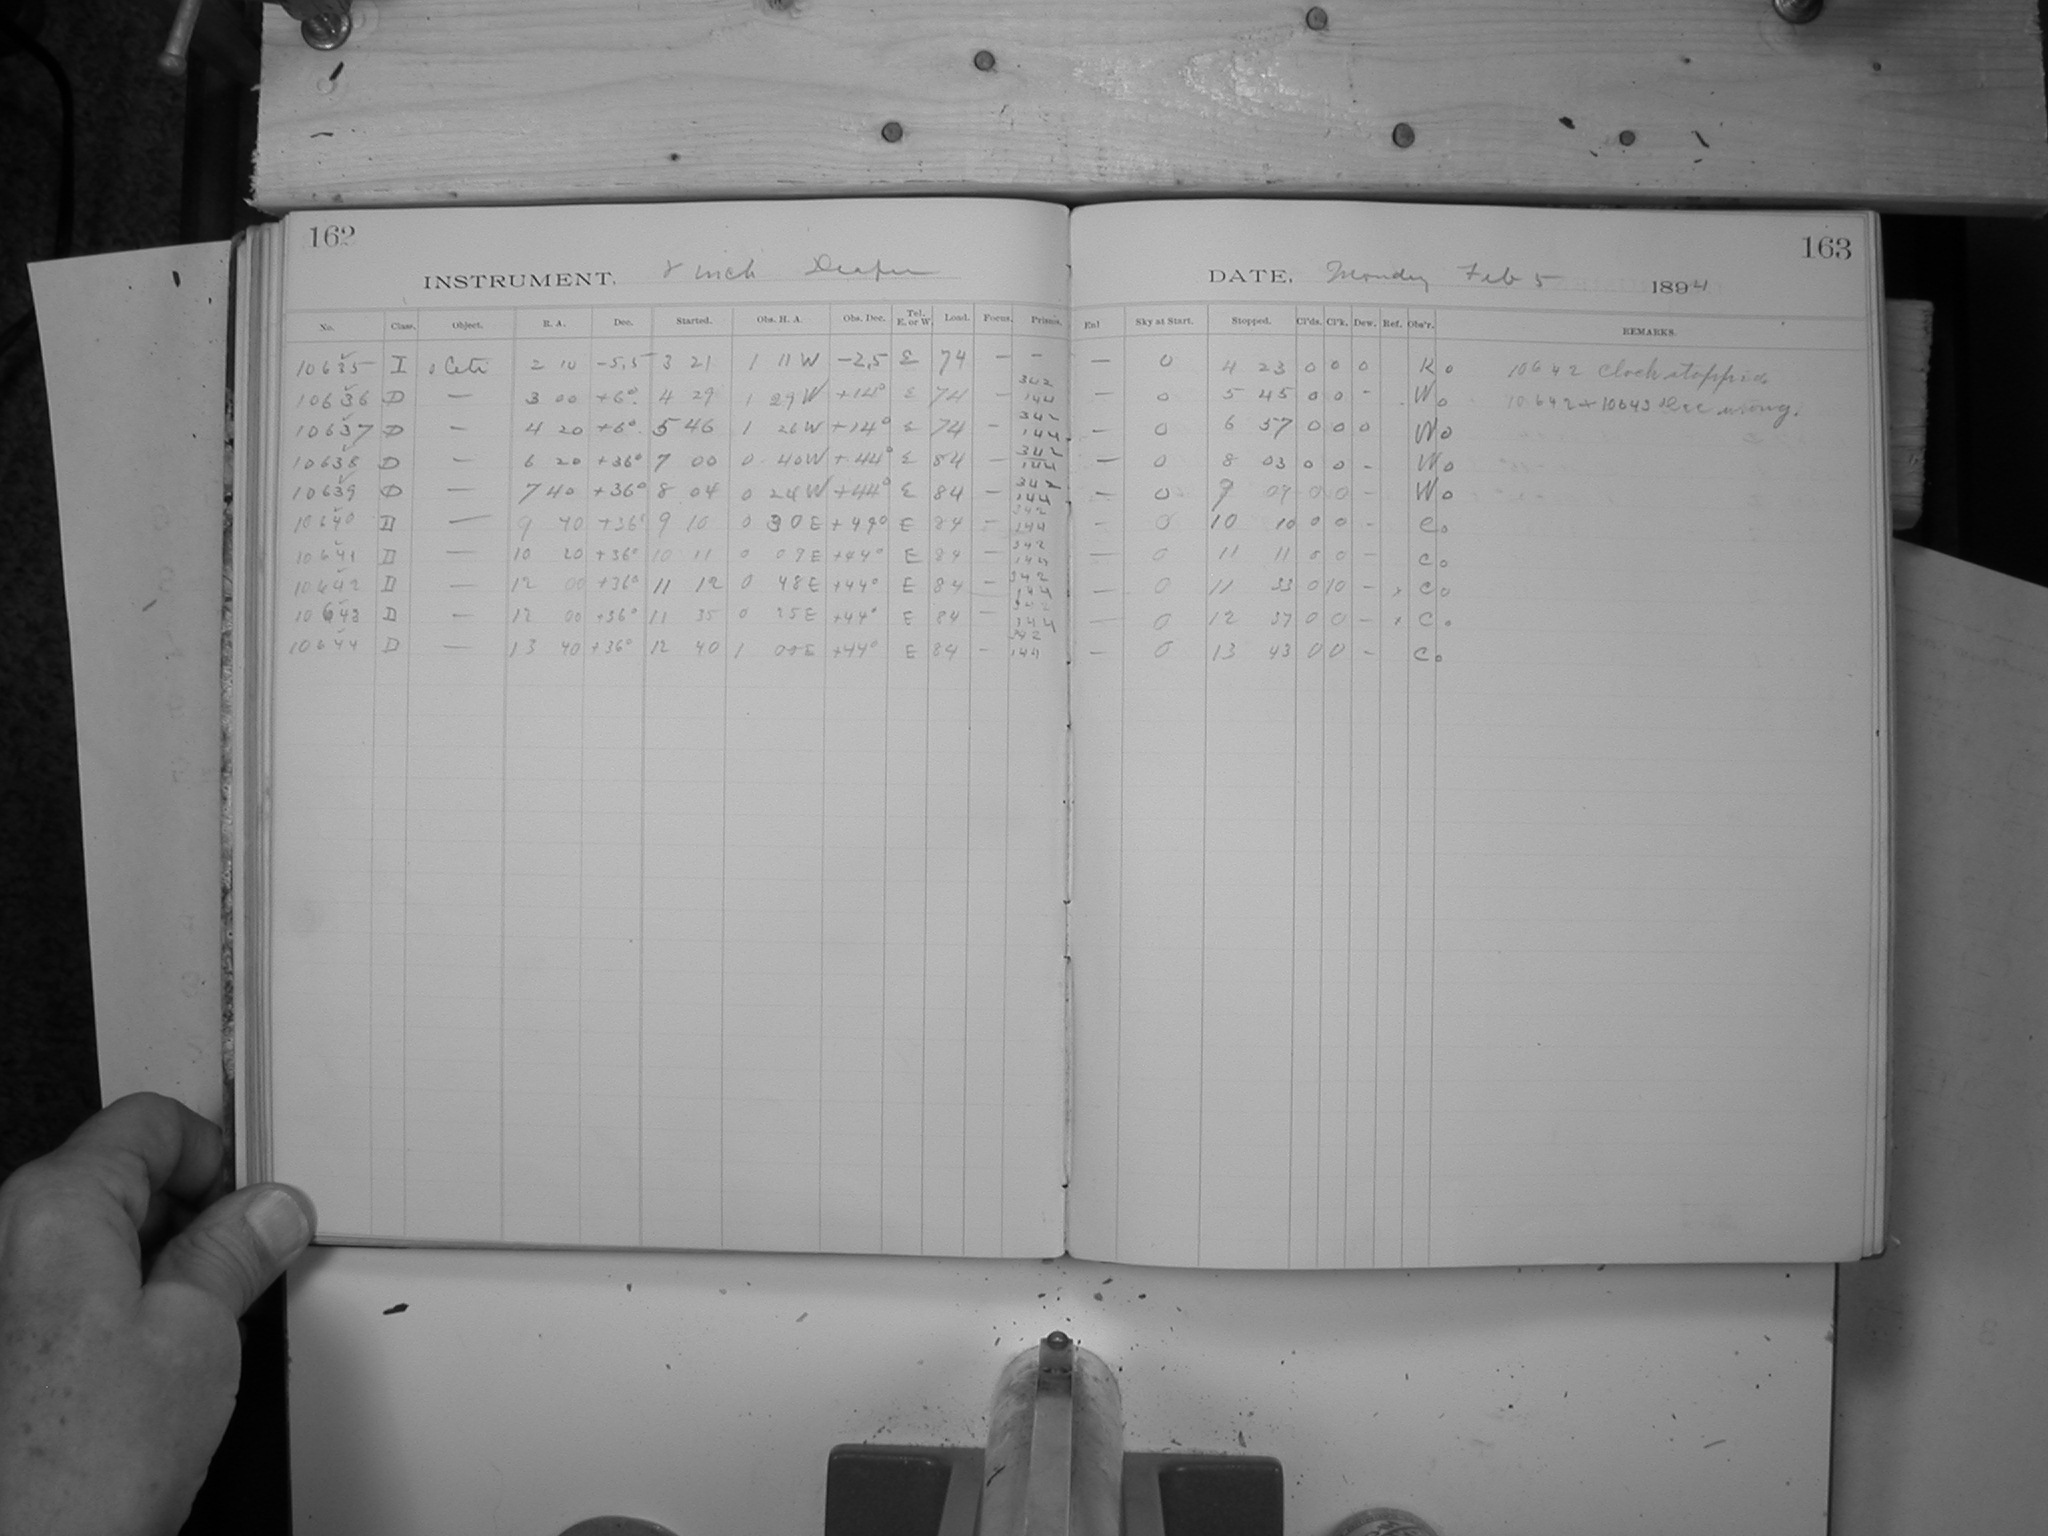 162
INSTRUMENT. 8 inch Draper
No. Class. Object. R. A. Dec. Started. Obs. H. A. Obs. Dec. Tel. E. or W. Load. Focus. Prisms.
10635 I o Ceti 2 10 -5,5 3 21 1 11 W -2,5 E 74 - -
10636 D - 3 00 +6° 4 29 1 29 W +14° E 74 - 342 144
10637 D - 4 20 +6° 5 46 1 26 W +14° E 74 - 342 144
10638 D - 6 20 +36° 7 00 0 40 W +44° E 84 - 342 144
10639 D - 7 40 +36° 8 04 0 24 W +44° E 84 - 342 144
10640 D - 9 40 +36° 9 10 0 30 E +44° E 84 - 342 144
10641 D - 10 20 +36° 10 11 0 09 E +44° E 84 - 342 144
10642 D - 12 00 +36° 11 12 0 48 E +44° E 84 - 342 144
10643 D - 12 00 +36° 11 35 0 25 E +44° E 84 - 342 144
10644 D - 13 40 +36° 12 40 1 00 E +44° E 84 - 342 144
163
DATE. Monday Feb 5 1894
Enl Sky at Start. Stopped. Cl'ds. Cl'k. Dew. Ref. Obs'r. REMARKS.
- 0 4 23 0 0 0 K o 10642 Clock stopped
- 0 5 45 0 0 - W o 10642 + 10643 Dec wrong.
- 0 6 57 0 0 0 W o
- 0 8 03 0 0 - W o
- 0 9 09 0 0 - W o
- 0 10 10 0 0 - C o
- 0 11 11 0 0 - C o
- 0 11 33 0 10 - x C o
- 0 12 37 0 0 - x C o
- 0 13 43 0 0 - C o